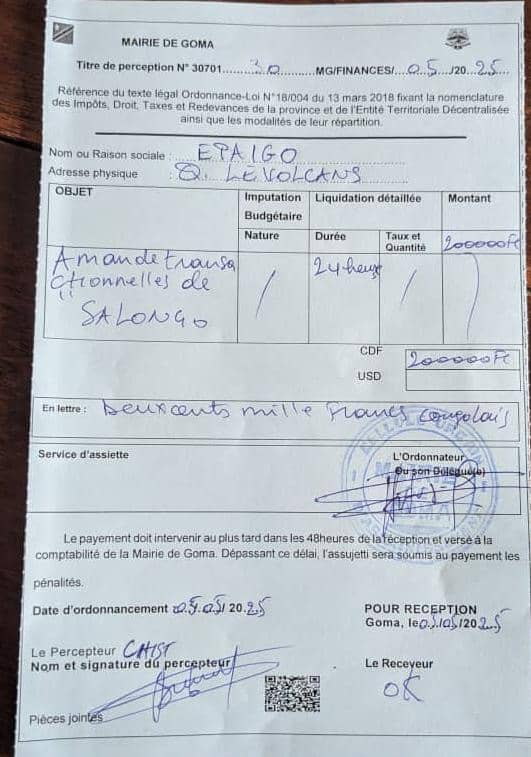 MAIRIE DE GOMA
Titre de perception N° 30701.........30............MG/FINANCES/...05..../20...25...
Référence du texte légal Ordonnance-Loi N°18/004 du 13 mars 2018 fixant la nomenclature
des Impôts, Droit, Taxes et Redevances de la province et de l'Entité Territoriale Décentralisée
ainsi que les modalités de leur répartition.
Nom ou Raison sociale : EPAIGO
Adresse physique : Q. LEVOLCANS
OBJET Imputation Budgétaire Liquidation détaillée Montant
Nature Durée Taux et Quantité 200000Fc
Amande transa 24 heures
ctionnelles de
"SALONGO
CDF 200000Fc
USD
En lettre : Deux cents mille Francs Congolais
Service d'assiette L'Ordonnateur
Ou son Délégué(e)
MAIRIE
GOMA
Le payement doit intervenir au plus tard dans les 48heures de la réception et versé à la
comptabilité de la Mairie de Goma. Dépassant ce délai, l'assujetti sera soumis au payement les
pénalités.
Date d'ordonnancement 05/05/ 2025 POUR RECEPTION
Goma, le05/05/2025
Le Percepteur CHIST
Nom et signature du percepteur Le Receveur
OK
Pièces jointes